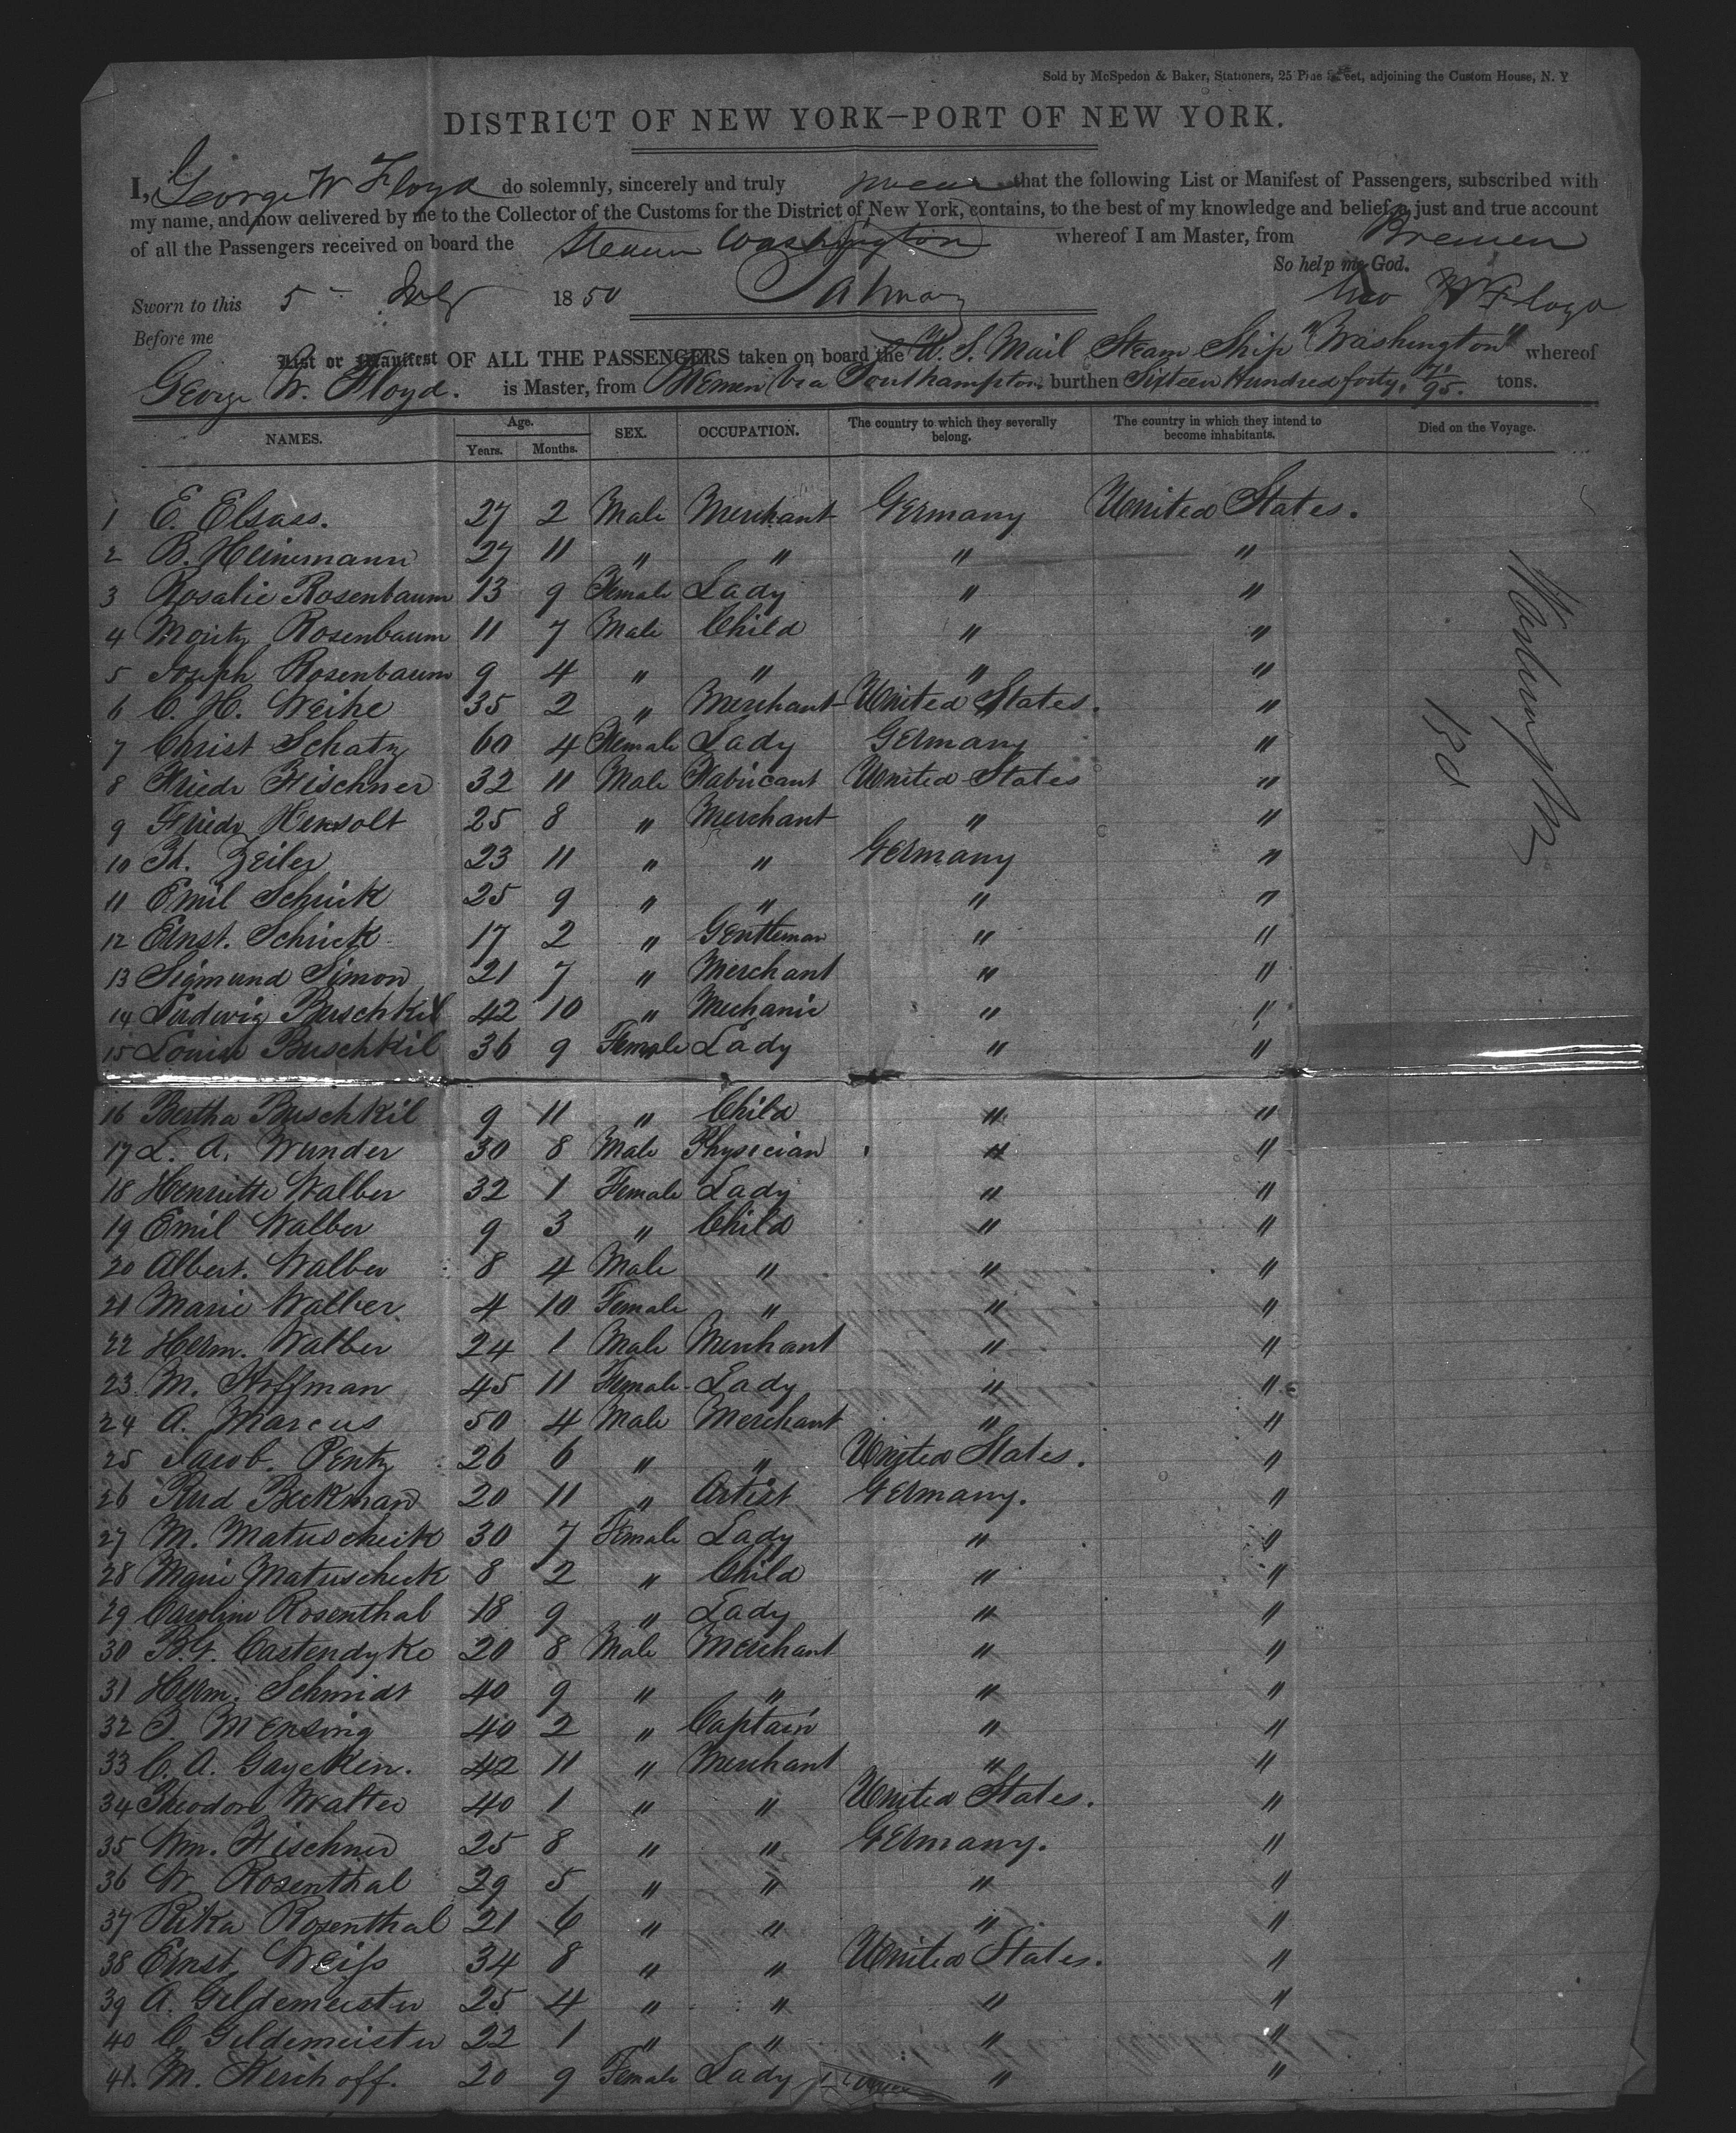 Sold by McSpedon & Baker, Stationers, 25 Pine Street, adjoining the Custom House, N. Y
DISTRICT OF NEW YORK—PORT OF NEW YORK.
I, George W Floyd do solemnly, sincerely and truly swear that the following List or Manifest of Passengers, subscribed with
my name, and now delivered by me to the Collector of the Customs for the District of New York, contains, to the best of my knowledge and belief, a just and true account
of all the Passengers received on board the Steamer Washington whereof I am Master, from Bremen
So help me God.
Sworn to this 5 July 1850 Geo W Floyd
Before me
List or Manifest OF ALL THE PASSENGERS taken on board the U. S. Mail Steam Ship "Washington" whereof
George W. Floyd. is Master, from Bremen via Southampton. burthen Sixteen Hundred forty. 71/95. tons.
NAMES. Age. Years. Months. SEX. OCCUPATION. The country to which they severally belong. The country in which they intend to become inhabitants. Died on the Voyage.
1 E. Elsass. 27 2 Male Merchant Germany United States.
2 B. Heinemann 27 11 " " " "
3 Rosalie Rosenbaum 13 9 Female Lady " "
4 Moritz Rosenbaum 11 7 Male Child " "
5 Joseph Rosenbaum 9 4 " " " "
6 C. H. Weihe 35 2 " Merchant United States. "
7 Christ Schatz 60 4 Female Lady Germany "
8 Friedr Fischner 32 11 Male Fabricant United States "
9 Friedr Hensolt 25 8 " Merchant " "
10 Th. Zeiler 23 11 " " Germany "
11 Emil Schuck 25 9 " " " "
12 Ernst. Schuck 17 2 " Gentleman " "
13 Sigmund Simon 21 7 " Merchant " "
14 Ludwig Buschkil 42 10 " Mechanic " "
15 Louise Buschkil 36 9 Female Lady " "
16 Bertha Buschkil 9 11 " Child " "
17 L. A. Wunder 30 8 Male Physician " "
18 Henriette Walber 32 1 Female Lady " "
19 Emil Walber 9 3 " Child " "
20 Albert. Walber 8 4 Male " " "
21 Marie Walber 4 10 Female " " "
22 Herm. Walber 24 1 Male Merchant " "
23 M. Hoffman 45 11 Female Lady " "
24 A. Marcus 50 4 Male Merchant " "
25 Jacob. Pentz 26 6 " " United States. "
26 Rud Beckman 20 11 " Artist Germany. "
27 M. Matuscheck 30 7 Female Lady " "
28 Marie Matuscheck 8 2 " Child " "
29 Caroline Rosenthal 18 9 " Lady " "
30 B. G. Castendyke 20 8 Male Merchant " "
31 Herm. Schmidt 40 9 " " " "
32 J. Mensing 40 2 " Captain " "
33 C. A. Gaycken. 42 11 " Merchant " "
34 Theodore Walter 40 1 " " United States. "
35 Wm. Fischner 25 8 " " Germany. "
36 W. Rosenthal 29 5 " " " "
37 Rika Rosenthal 21 6 " " " "
38 Ernst Weiss 34 8 " " United States. "
39 A. Gildemeister 25 4 " " " "
40 C. Gildemeister 22 1 " " " "
41. M. Kerchoff. 20 9 Female Lady " "
130